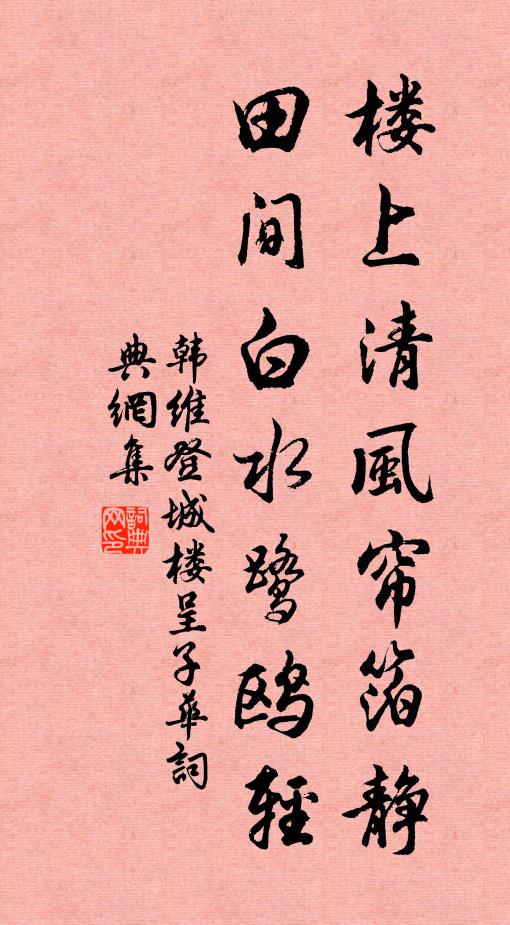 楼上清風帘箔静
田间白水鹭鸥轻
韩维登城楼呈子華詞
典網集
詞典
网印